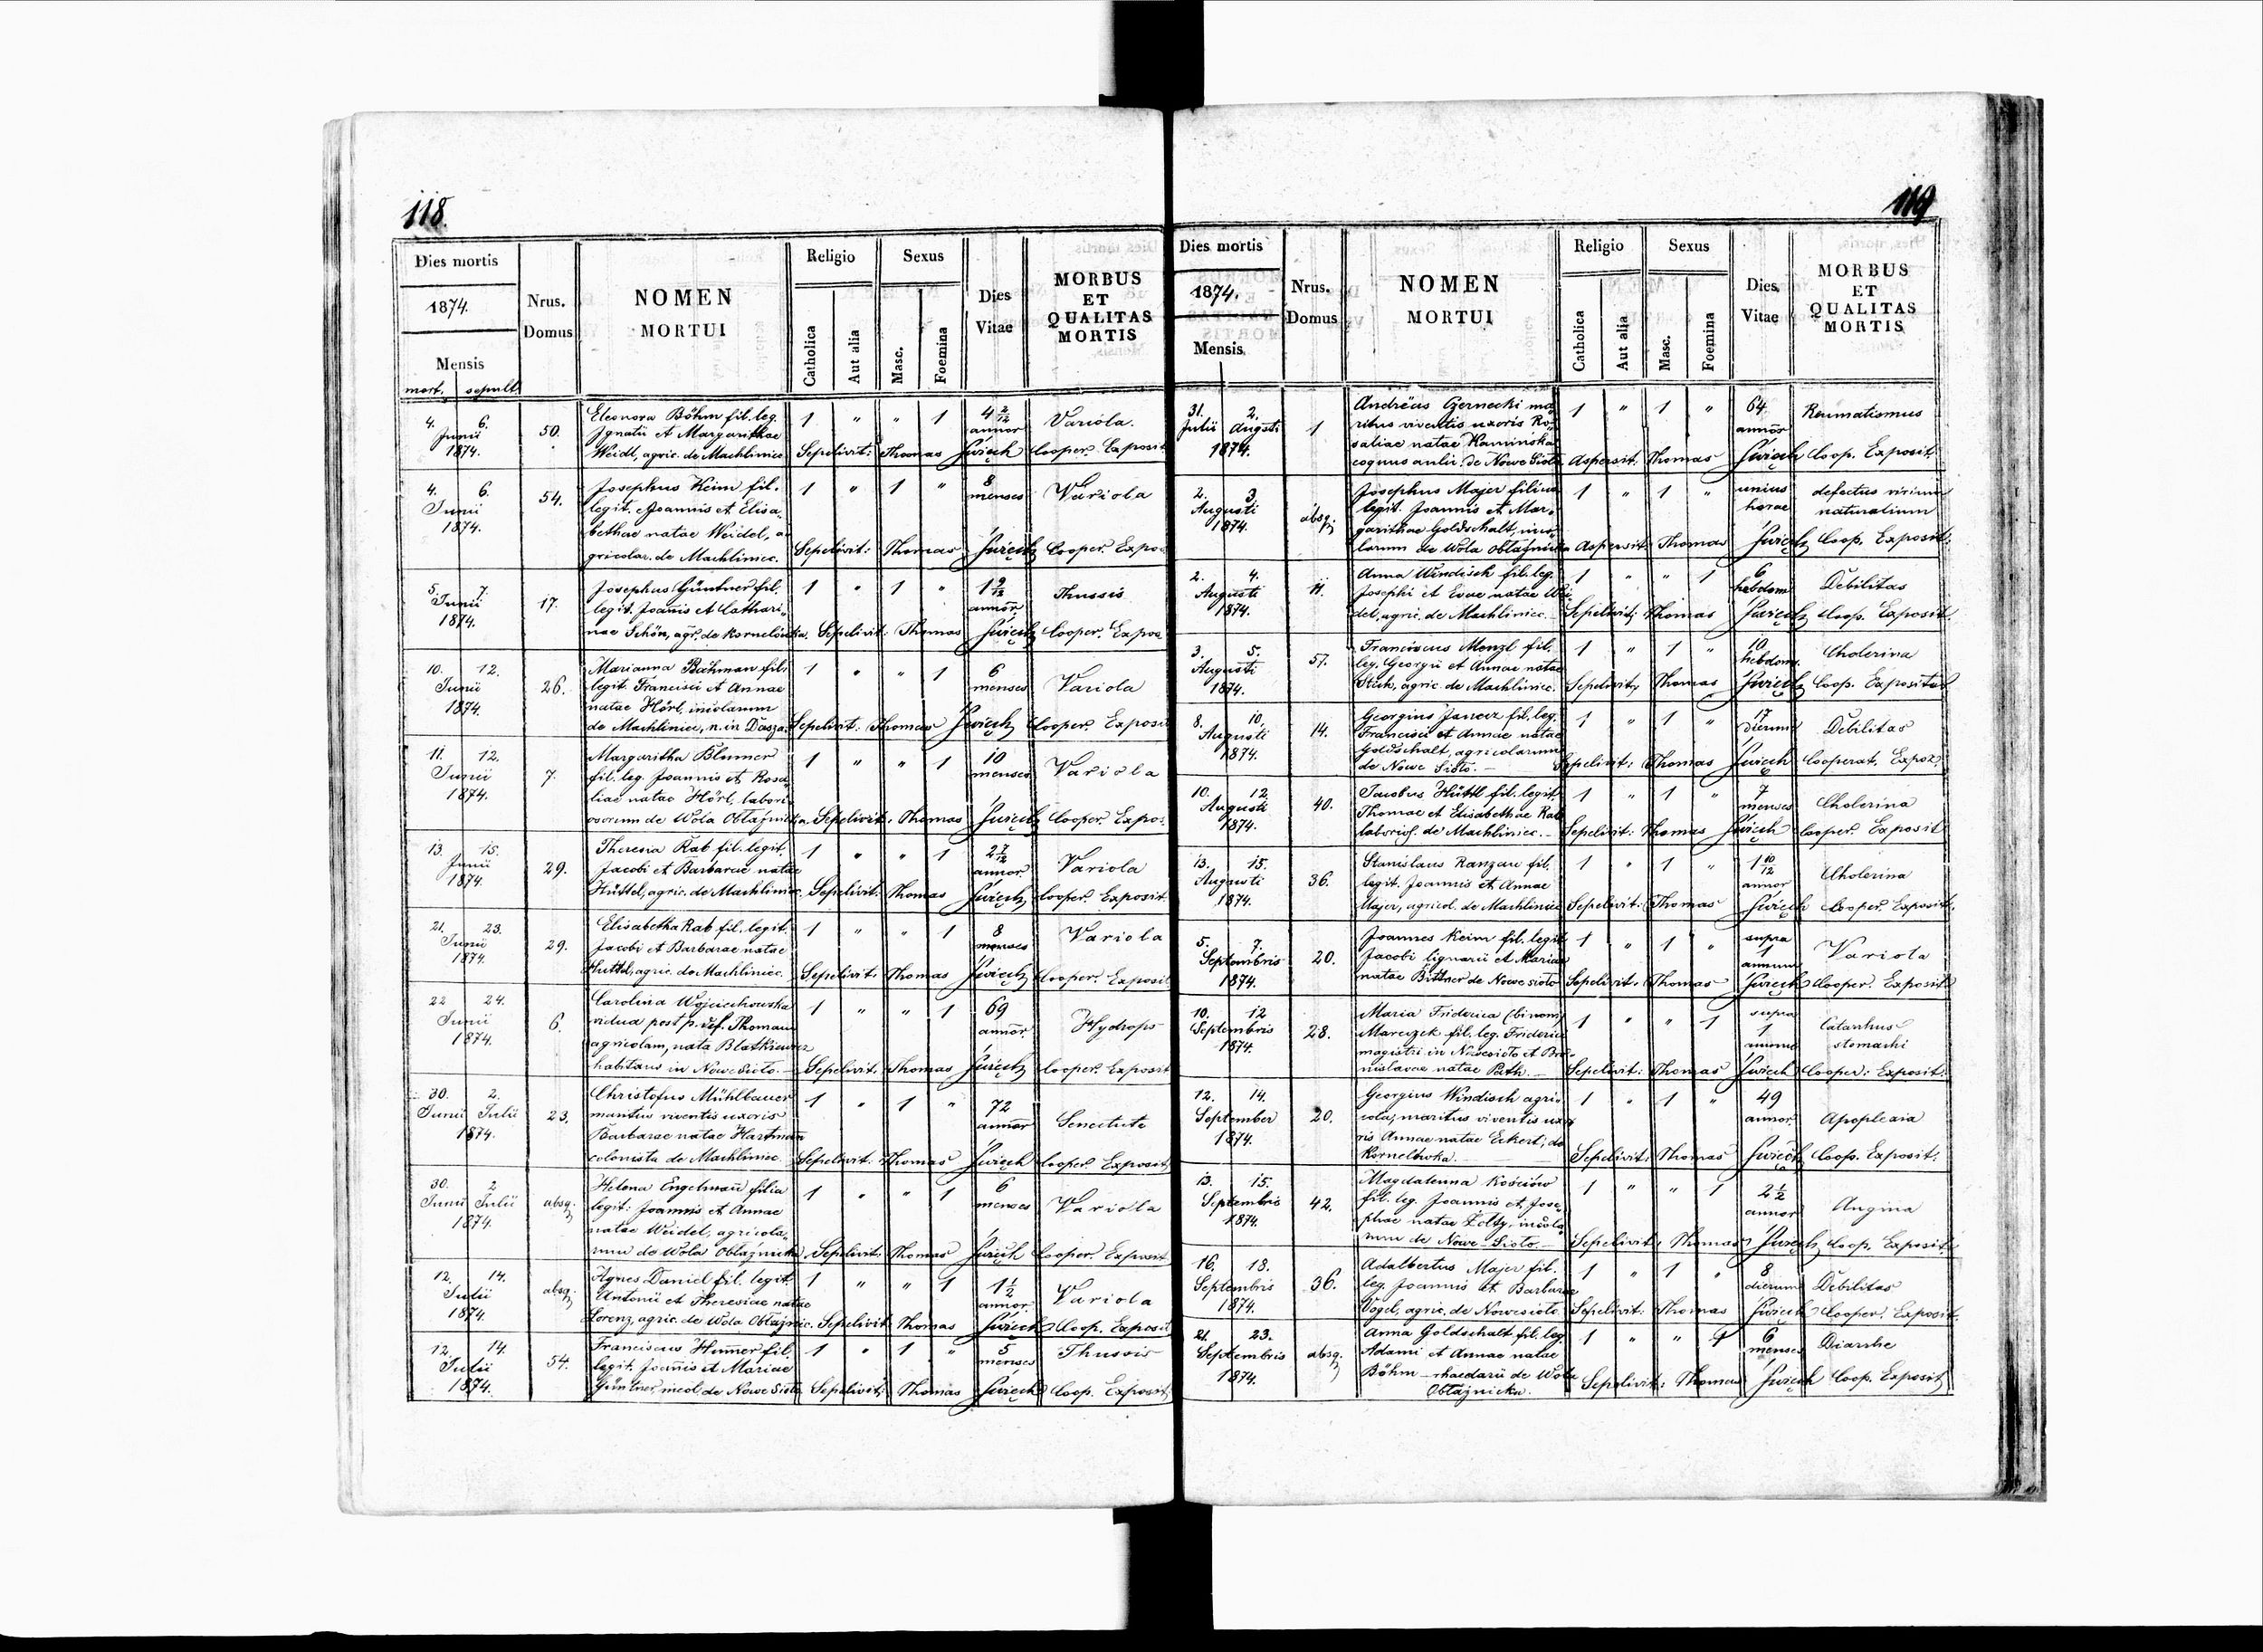 118.
Dies mortis
1874.
Mensis
mort. sepult.
Nrus.
Domus
NOMEN
MORTUI
Religio
Catholica
Aut alia
Sexus
Masc.
Foemina
Dies
Vitae
MORBUS
ET
QUALITAS
MORTIS
4. 6.
Junii
1874.
50.
Eleonora Böhm fil. leg.
Ignatii et Margarithae
Weidl, agric. de Machliniec
1 " " 1
4 2/12
annor
Variola.
Sepelivit: Thomas Święch Cooper. Exposit.
4. 6.
Junii
1874.
54.
Josephus Keim fil.
legit. Joannis et Elisa-
bethae natae Weidel, a-
gricolar. de Machliniec.
1 " 1 "
8
menses
Variola
Sepelivit: Thomas Święch Cooper. Expos
5. 7.
Junii
1874.
17.
Josephus Güntner fil.
legit. Joañis et Cathari-
nae Schön, agr. de Kornelówka.
1 " 1 "
1 9/12
annor.
Thussis
Sepelivit: Thomas Święch Cooper. Expos
10. 12.
Junii
1874.
26.
Marianna Bahman fil.
legit. Francisci et Annae
natae Hörl, inquolarum
de Machliniec, n. in Dasza.
1 " " 1
6
menses
Variola
Sepelivit: Thomas Święch Cooper. Exposit
11. 12.
Junii
1874.
7.
Margaritha Blumer
fil. leg. Joannis et Rosa-
liae natae Hörl, labori-
osorum de Wola Obłaźnicka.
1 " " 1
10
menses
Variola
Sepelivit: Thomas Święch Cooper. Expo.
13. 15.
Junii
1874.
29.
Theresia Rab fil. legit.
Jacobi et Barbarae natae
Hüttel, agric. de Machliniec.
1 " " 1
2 7/12
annor.
Variola
Sepelivit: Thomas Święch Cooper. Exposit.
21. 23.
Junii
1874.
29.
Elisabetha Rab fil. legit.
Jacobi et Barbarae natae
Huttel, agric. de Machliniec.
1 " " 1
8
menses
Variola
Sepelivit: Thomas Święch Cooper. Exposit
22 24.
Junii
1874.
6.
Carolina Wojciechowska
vidua post p. def. Thomam
agricolam, nata Blatkiewicz
habitans in Nowesioło.
1 " " 1
69
annor.
Hydrops
Sepelivit: Thomas Święch Cooper. Exposit
30. 2.
Junii Julii
1874.
23.
Christofus Mühlbauer
maritus viventis uxoris
Barbarae natae Hartman
colonista de Machliniec.
1 " 1 "
72
annor
Senectute
Sepelivit: Thomas Święch Cooper. Exposit
30. 2
Junii Julii
1874.
absq:
Helena Engelmañ filia
legit: Joannis et Annae
natae Weidel, agricola-
rum de Wola Obłaźnicka
1 " " 1
6
menses
Variola
Sepelivit: Thomas Święch Cooper. Exposit
12. 14.
Julii
1874.
absq:
Agnes Daniel fil. legit.
Antonii et Theresiae natae
Lorenz, agric. de Wola Obłaźnic.
1 " " 1
1 1/2
annor.
Variola
Sepelivit Thomas Święch Coop. Exposit
12. 14.
Julii
1874.
54.
Franciscus Humer fil.
legit. Joañis et Mariae
Güntner, incol. de Nowe Sioło.
1 " 1 "
5
menses
Thussis
Sepelivit: Thomas Święch Coop. Exposit
119
Dies mortis
1874.
Mensis
Nrus.
Domus
NOMEN
MORTUI
Religio
Catholica
Aut alia
Sexus
Masc.
Foemina
Dies
Vitae
MORBUS
ET
QUALITAS
MORTIS
31. 2.
Julii Augusti
1874.
1
Andréus Czernecki ma-
ritus viventis uxoris Ro-
saliae natae Kamińska
coquus aulii. de Nowe Sioło
1 " 1 "
64.
annor
Reumatismus
Aspersit. Thomas Święch Coop. Exposit.
2. 3
Augusti
1874.
absq:
Josephus Majer filius
legit. Joannis et Mar-
garithae Goldschalt, inco-
larum de Wola obłaźnicka
1 " 1 "
unius
horae
defectus virium
naturalium
Aspersit Thomas Święch Coop. Exposit.
2. 4.
Augusti
1874.
11.
Anna Windisch fil. leg.
Josephi et Evae natae Wei-
del, agric. de Machliniec.
1 " " 1
6
hebdom
Debilitas
Sepelivit; Thomas Święch Coop. Exposit.
3. 5.
Augusti
1874.
57.
Franciscus Menzl fil.
leg. Georgii et Annae natae
Stuk, agric. de Machliniec.
1 " 1 "
10
hebdom.
Cholerina
Sepelivit, Thomas Święch Coop. Expositus
8. 10.
Augusti
1874.
14.
Georgius Jancez fil. leg.
Francisci et Annae natae
Goldschalt, agricolarum
de Nowe Sioło.
1 " 1 "
17
dierum
Debilitas
Sepelivit: Thomas Święch Cooperat. Expoz.
10. 12
Augusti
1874.
40.
Jacobus Hüttl fil. legit.
Thomae et Elisabethae Rab
laborios. de Machliniec.
1 " 1 "
7
menses
Cholerina
Sepelivit: Thomas Święch Cooper. Exposit
13. 15.
Augusti
1874.
36.
Stanislaus Ranzau fil.
legit. Joannis et Annae
Majer, agricol. de Machliniec
1 " 1 "
1 10/12
annor
Cholerina
Sepelivit: Thomas Święch Cooper. Exposit.
5. 7.
Septembris
1874.
20.
Joannes Keim fil. legit
Jacobi lignarii et Mariae
natae Bittner de Nowesioło
1 " 1 "
supra
1
annum
Variola
Sepelivit. Thomas Święch Cooper. Exposit.
10. 12
Septembris
1874.
28.
Maria Friderica (binom)
Marczek fil. leg. Friderici
magistri in Nowesioło et Bro-
nislavae natae Path.
1 " " 1
supra
1
annum
Catarrhus
stomachi
Sepelivit: Thomas Święch Cooper: Exposit:
12. 14.
September
1874.
20.
Georgius Windisch agri-
cola, maritus viventis uxo-
ris Annae natae Eckert, de
Kornelówka.
1 " 1 "
49
annor.
Apoplexia
Sepelivit: Thomas Święch Coop. Exposit.
13. 15.
Septembris
1874.
42.
Magdalenna Kościów
fil. leg. Joannis et Jose-
phae natae Żółty, incola-
rum de Nowe-Sioło.
1 " " 1
2 1/2
annor
Angina
Sepelivit: Thomas Święch Coop. Exposit.
16. 18.
Septembris
1874.
36.
Adalbertus Majer fil.
leg. Joannis et Barbarae
Vogel, agric. de Nowesioło.
1 " 1 "
8
dierum
Debilitas
Sepelivit: Thomas Święch Cooper. Exposit.
21. 23.
Septembris
1874.
absq:
Anna Goldschalt fil. leg.
Adami et Annae natae
Böhm rhaedarii de Wola
Obłaźnicka.
1 " " 1
6
menses
Diarrhe
Sepelivit: Thomas Święch Coop. Exposit